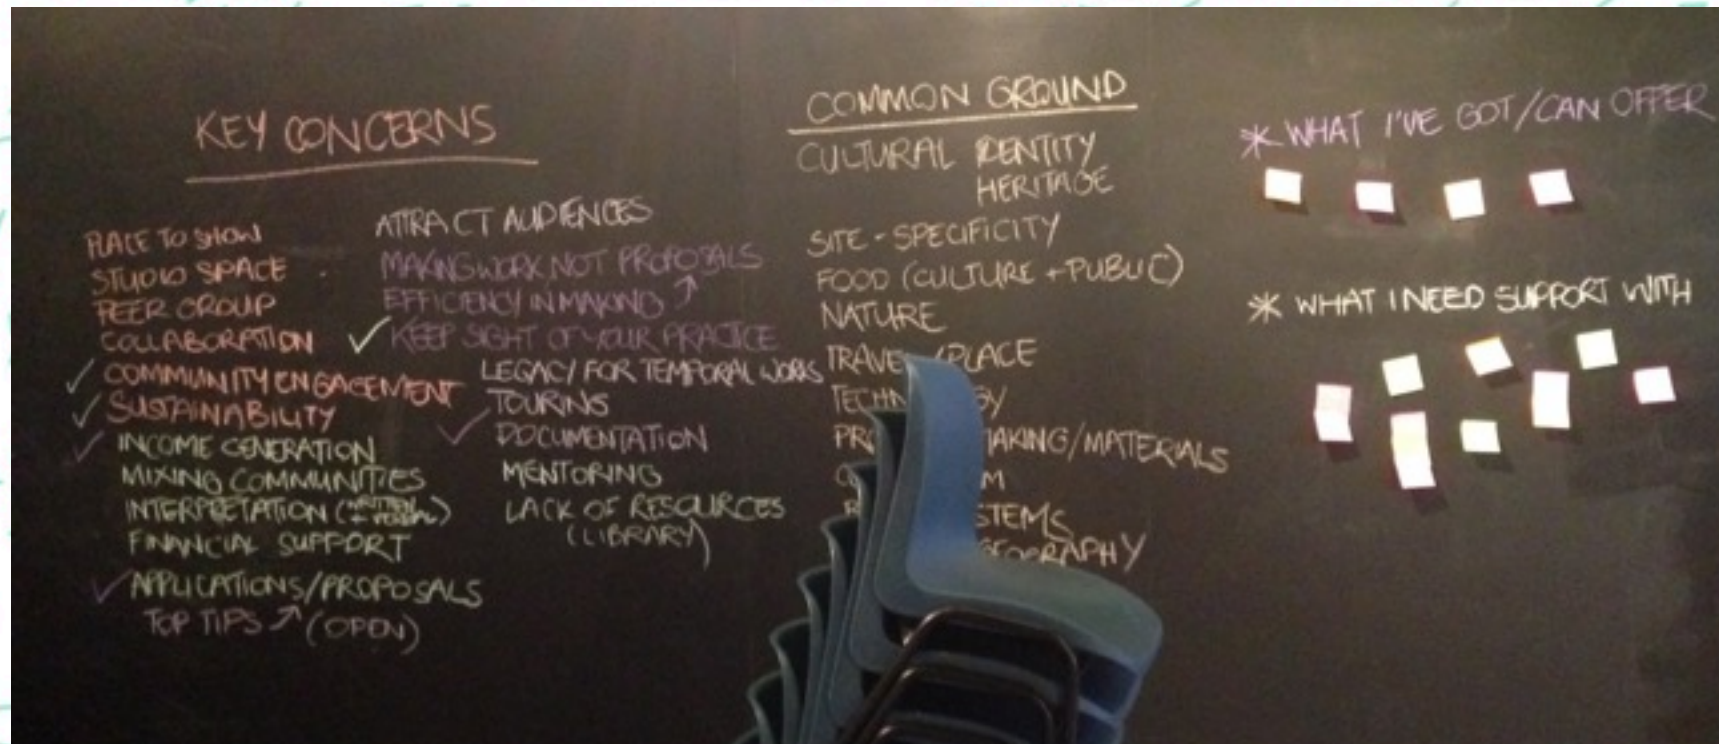 KEY CONCERNS
PLACE TO SHOW
STUDIO SPACE
PEER GROUP
COLLABORATION
✓ COMMUNITY ENGAGEMENT
✓ SUSTAINABILITY
✓ INCOME GENERATION
MIXING COMMUNITIES
INTERPRETATION (
FINANCIAL SUPPORT
✓ APPLICATIONS/PROPOSALS
TOP TIPS ↗ (OPEN)
ATTRACT AUDIENCES
MAKING WORK NOT PROPOSALS
EFFICIENCY IN MAKING ↗
✓ KEEP SIGHT OF YOUR PRACTICE
LEGACY/FOR TEMPORAL WORKS
TOURING
✓ DOCUMENTATION
MENTORING
LACK OF RESOURCES
(LIBRARY)
COMMON GROUND
CULTURAL IDENTITY
HERITAGE
SITE-SPECIFICITY
FOOD (CULTURE + PUBLIC)
NATURE
/PLACE
MAKING/MATERIALS
* WHAT I'VE GOT/CAN OFFER
* WHAT I NEED SUPPORT WITH